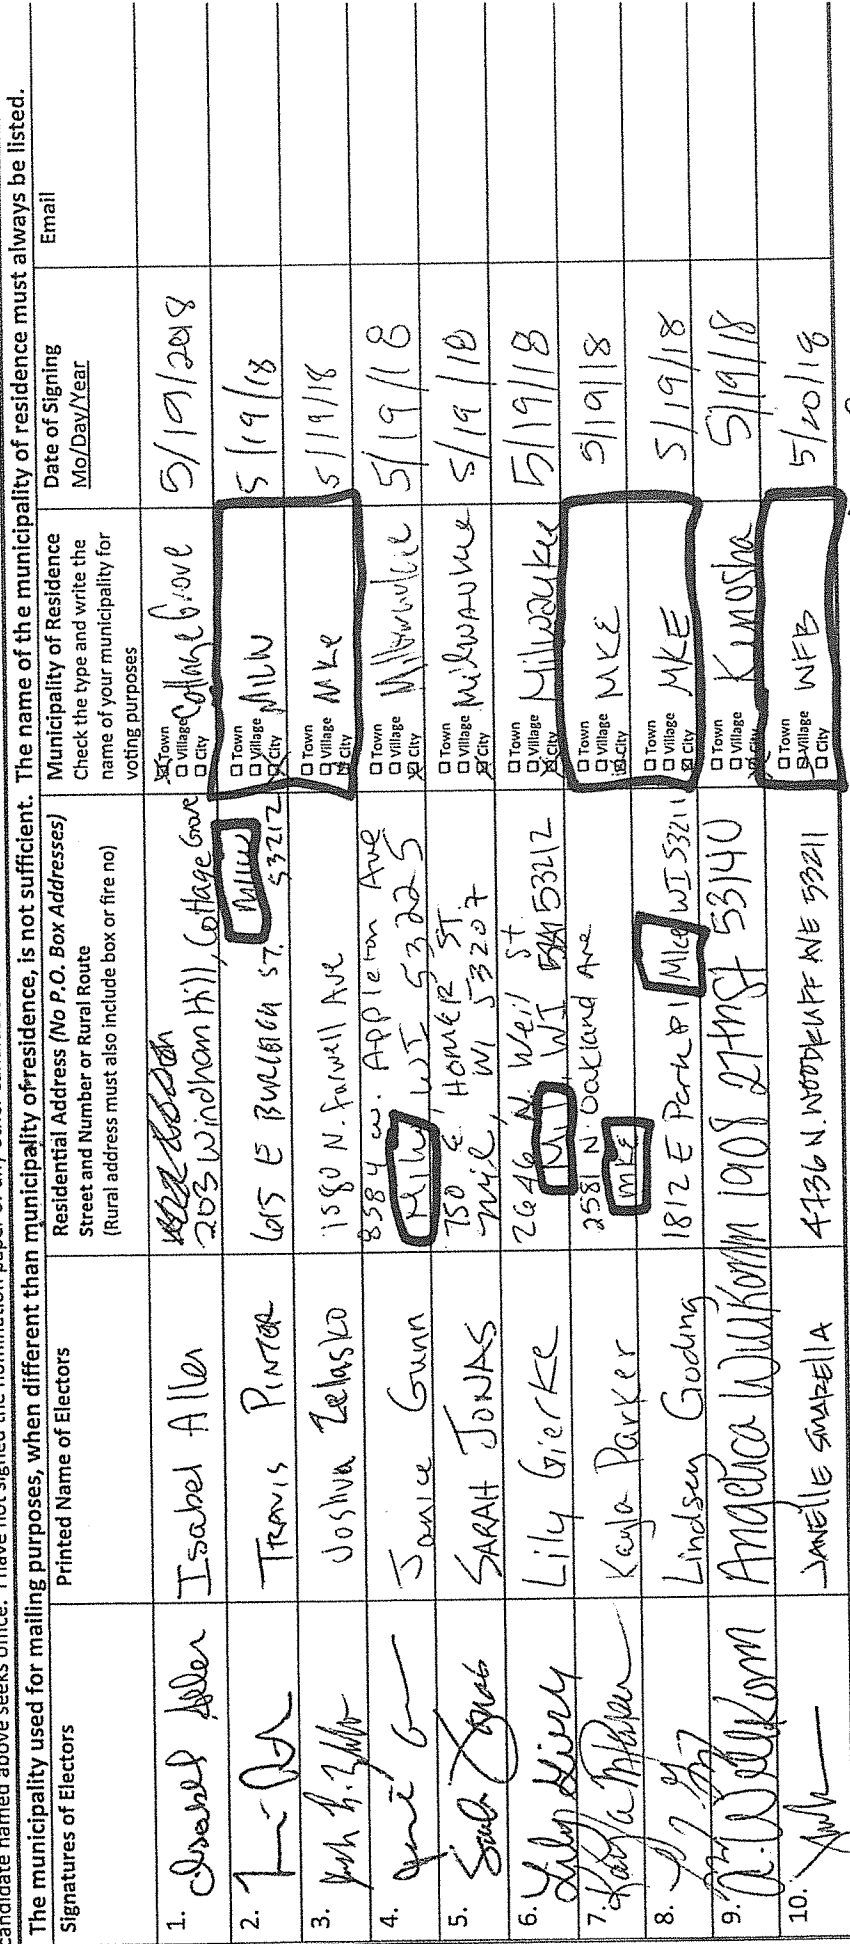 candidate named above seeks office. I have not signed the nomination paper of any other candidate
The municipality used for mailing purposes, when different than municipality of residence, is not sufficient. The name of the municipality of residence must always be listed.
Signatures of Electors
Printed Name of Electors
Residential Address (No P.O. Box Addresses)
Street and Number or Rural Route
(Rural address must also include box or fire no)
Municipality of Residence
Check the type and write the
name of your municipality for
voting purposes
Date of Signing
Mo/Day/Year
Email
1. Isabel Allen
Isabel Allen
203 Windham Hill, Cottage Grove
Town
Village
City
Cottage Grove
5/19/2018
2.
TRAVIS PINTER
615 E BURLEIGH ST. MILW 53212
Town
Village
City
MILW
5/19/18
3.
Joshua Zelasko
1580 N. Farwell Ave
Town
Village
City
Mke
5/19/18
4.
Janice Gunn
8584 W. Appleton Ave
Milw WI 53225
Town
Village
City
Milwaukee
5/19/18
5. Sarah Jonas
SARAH JONAS
750 E HOMER ST.
Mil, WI 53207
Town
Village
City
Milwaukee
5/19/18
6.
Lily Gierke
2646 N. Weil St
Mil, WI 53212
Town
Village
City
Milwaukee
5/19/18
7.
Kayla Parker
2581 N. Oakland Ave
MKE
Town
Village
City
MKE
5/19/18
8.
Lindsey Goding
1812 E Park Pl Mke WI 53211
Town
Village
City
MKE
5/19/18
9. A. Willkomm
Angelica Willkomm
1908 27th St 53140
Town
Village
City
Kenosha
5/19/18
10.
JANELLE SMARELLA
4736 N. WOODRUFF AVE 53211
Town
Village
City
WFB
5/20/18